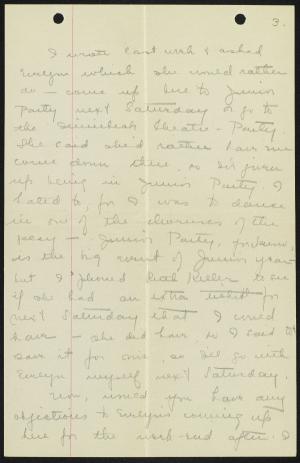 3.
I wrote last week & asked
Evelyn which she would rather
do - come up here to Junior
Party next Saturday or go to
the Theatre - Party.
She said she'd rather have me
come down there, so I've given
up being in Junior Party. I
hated to, for I was to dance
in one of the choruses of the
play - Junior Party, you know,
is the big event of Junior year -
but I phoned Ruth to see
if she had an extra ticket for
next Saturday that I could
have - she did have, so I said to
save it for me, so I'll go with
Evelyn myself next Saturday.
Now, would you have any
objections to Evelyn's coming up
here for the week-end after. I